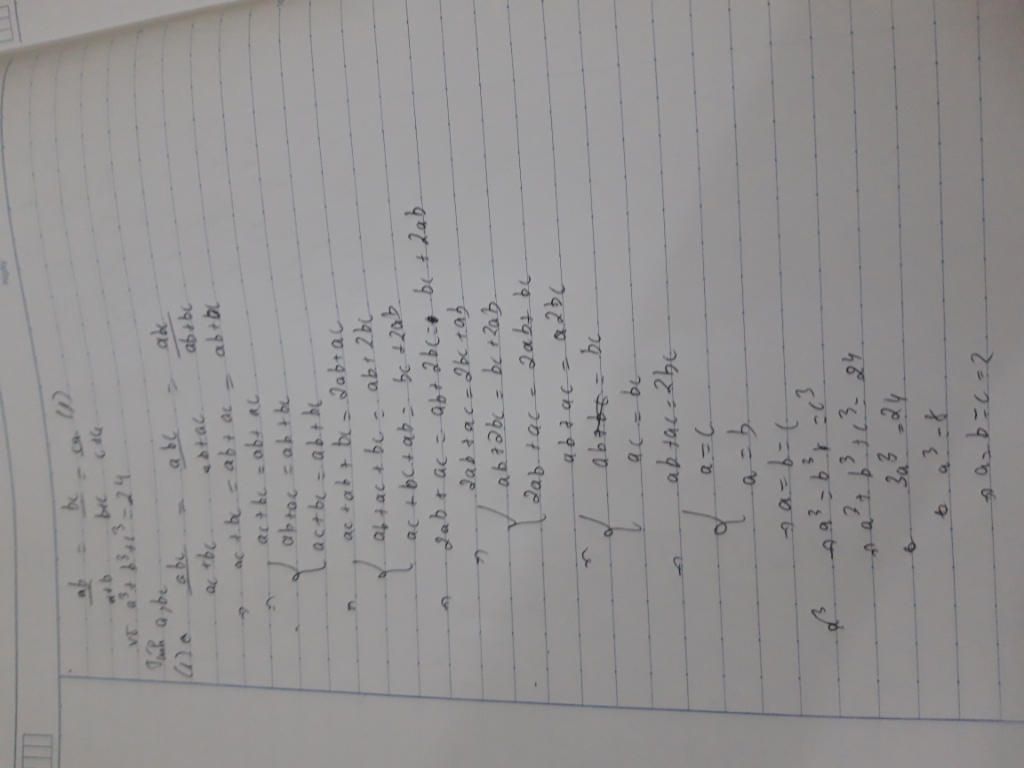 ab/a+b = bc/b+c = ca/c+a (1)
và a³ + b³ + c³ = 24
Tính a, b, c
(1) abc/ac+bc = abc/ab+ac = abc/ab+bc
→ ac + bc = ab + ac = ab + bc
→ { ac + bc = ab + ac
ab + ac = ab + bc
ac + bc = ab + bc
→ { ac + ab + bc = 2ab + ac
ab + ac + bc = ab + 2bc
ac + bc + ab = bc + 2ab
→ 2ab + ac = ab + 2bc = bc + 2ab
→ { 2ab + ac = 2bc + ab
ab + 2bc = bc + 2ab
2ab + ac = 2ab + bc
→ { ab + ac = a2bc
ab = bc
ac = bc
→ ab + ac = 2bc
{ a = c
a = b
→ a = b = c
→ a³ = b³ = c³
→ a³ + b³ + c³ = 24
3a³ = 24
a³ = 8
→ a = b = c = 2